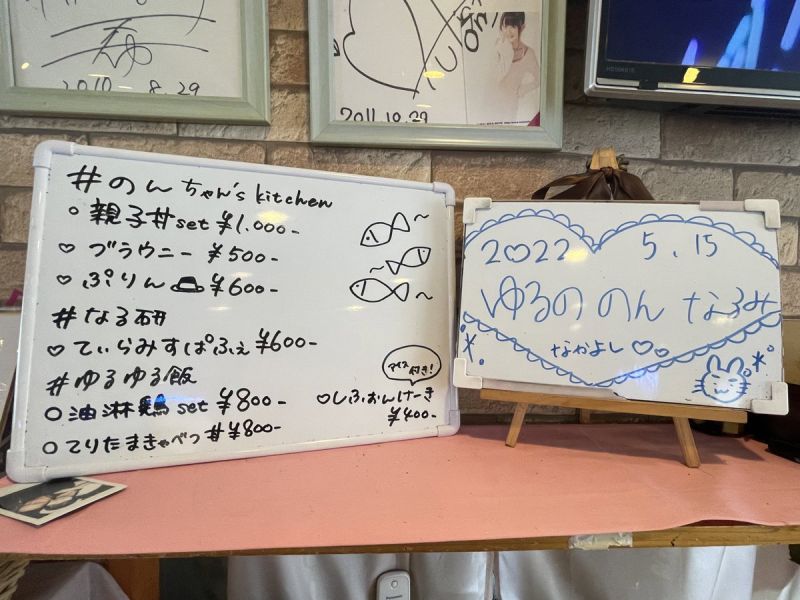 2010.8.29
2011.10.29
#のんちゃん's kitchen
○親子丼set ¥1.000-
♡ブラウニー ¥500-
♡ぷりん ¥600-
#なる研
♡てぃらみすぱふぇ ¥600-
#ゆるゆる飯
○油淋鶏set ¥800-
○てりたまきゃべつ丼¥800-
アイス付き!
♡しふぉんけーき
¥400-
2022 5.15
ゆるの のん なるみ
なかよし♡♡